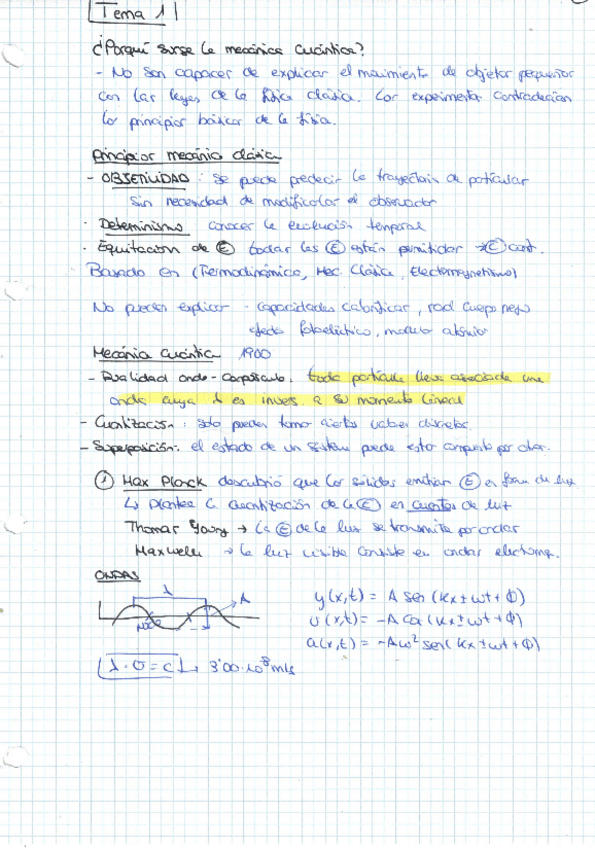 Tema 1
¿Porqué surge la mecánica cuántica?
- No son capaces de explicar el movimiento de objetos pequeños
con las leyes de la física clásica. Los experimentos contradecían
los principios básicos de la física.
Principios mecánica clásica
- OBJETIVIDAD: se puede predecir la trayectoria de partículas
sin necesidad de modificarlas el observador
- Determinismo: conocer la evolución temporal
- Equitación de E todas las E están permitidas → E cont.
Basado en (Termodinámica, Mec. Clásica, Electromagnetismo)
No pueden explicar - capacidades caloríficas, rad cuerpo negro
efecto fotoeléctrico, modelo atómico
Mecánica cuántica 1900
- Dualidad onda-corpúsculo: toda partícula lleva asociada una
onda cuya λ es invers. a su momento lineal
- Cuantización: solo pueden tomar ciertos valores discretos.
- Superposición: el estado de un sistema puede estar compuesto por otros.
① Max Planck descubrió que los sólidos emitían E en forma de luz
↳ Plantea la cuantización de la E en cuantos de luz
Thomas Young → La E de la luz se transmite por ondas
Maxwell → la luz visible consiste en ondas electromag.
ONDAS
λ A
y(x,t) = A sen (kx ± ωt + ϕ)
v(x,t) = -A cos (kx ± ωt + ϕ)
a(x,t) = -Aω² sen (kx ± ωt + ϕ)
λ · υ = c ↳ 3'00·10⁸ m/s